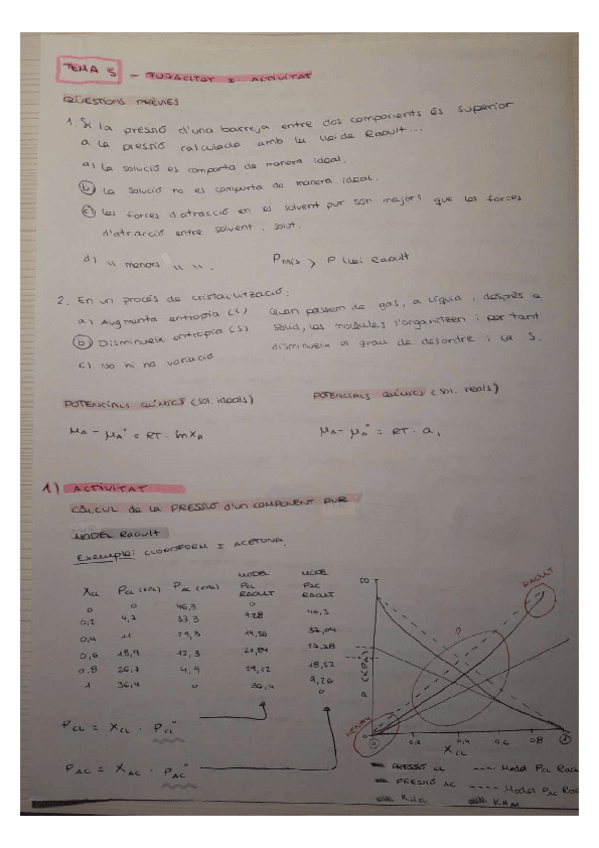 TEMA 5 - FUGACITAT I ACTIVITAT
QÜESTIONS PRÈVIES
1. Si la pressió d'una barreja entre dos components és superior
a la pressió calculada amb la llei de Raoult...
a) La solució es comporta de manera ideal.
b) La solució no es comporta de manera ideal.
c) Les forces d'atracció en el solvent pur són majors que les forces
d'atracció entre solvent i solut.
d) " menors " ".
Pmix > P llei Raoult
2. En un procés de cristal·lització:
a) Augmenta entropia (S)
b) Disminueix entropia (S)
c) No hi ha variació
Quan passem de gas, a líquid i després a
sòlid, les molècules s'organitzen i per tant
disminueix el grau de desordre i la S.
POTENCIALS QUÍMICS (sol. ideals)
POTENCIALS QUÍMICS (sol. reals)
μA - μA° = RT · ln xA
μA - μA° = RT · a,
1) ACTIVITAT
CÀLCUL de la PRESSIÓ d'un COMPONENT PUR
MODEL Raoult
Exemple: CLOROFORM I ACETONA.
XCL PCL (KPa) PAC (KPa) MODEL PCL RAOULT MODEL PAC RAOULT
0 0 46,3 0 46,3
0,2 4,7 33,3 7,28 37,04
0,4 11 23,3 14,56
0,6 18,9 12,3 21,84 18,52
0,8 26,7 4,9 29,12 9,26
1 36,4 0 36,4 0
PCL = XCL · PCL°
PAC = XAC · PAC°
50
P (KPa)
0
RAOULT
HENRY
0 0,2 0,4 0,6 0,8 1
XCL
PRESSIÓ CL
--- Model PCL Rao
PRESSIÓ AC
---- Model PAC Rao
KHCL
KHAC